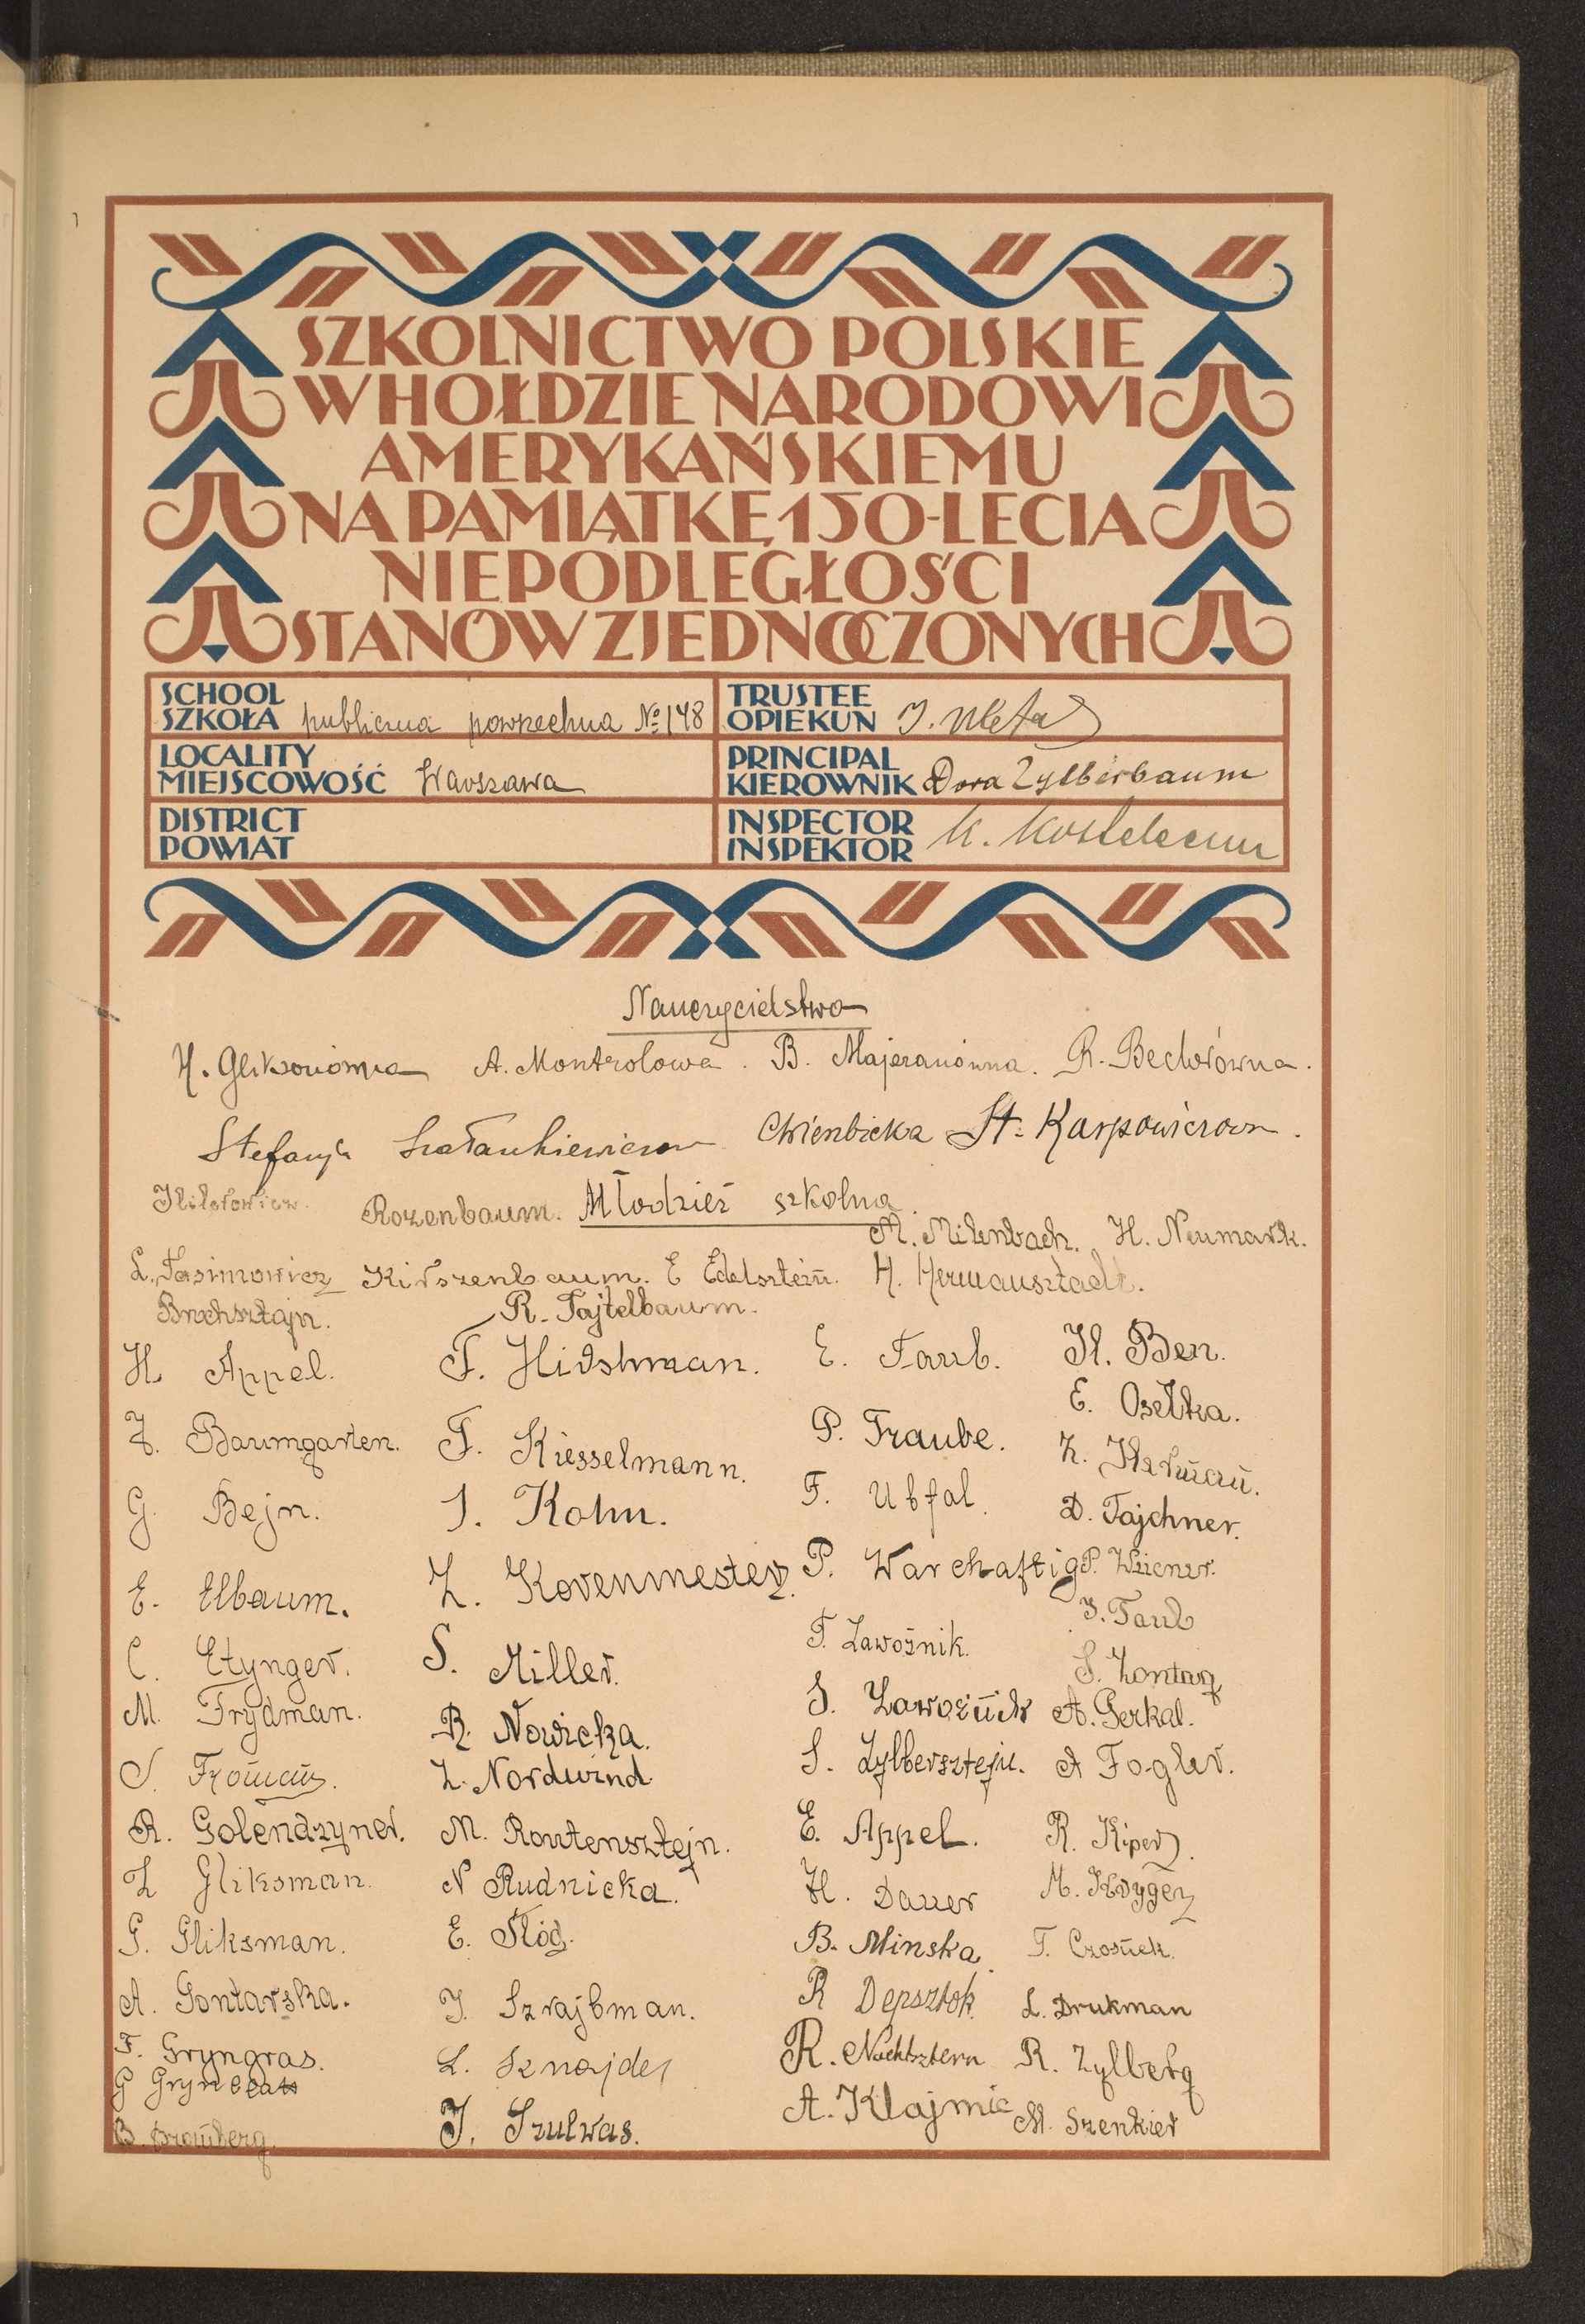 SZKOLNICTWO POLSKIE
W HOŁDZIE NARODOWI
AMERYKAŃSKIEMU
NA PAMIĄTKĘ 150-LECIA
NIEPODLEGŁOŚCI
STANÓW ZJEDNOCZONYCH
SCHOOL
SZKOŁA publiczna powszechna № 148
TRUSTEE
OPIEKUN
LOCALITY
MIEJSCOWOŚĆ Warszawa
PRINCIPAL
KIEROWNIK Dora Zylberbaum
DISTRICT
POWIAT
INSPECTOR
INSPEKTOR
Nauczycielstwo
H. Gliksonówna A. Montrolowa. B. Majeranówna. R. Bechorówna.
Stefanja Chlenbicka St. Karpowiczowa.
Rozenbaum. Młodzież szkolna.
M. Milenbach. H. Neumark.
Kirszenbaum. E Edelsztein. H. Hermansztadt.
Brochsztajn. R. Tajtelbaum.
H. Appel. F. Hirshman. E. Taub. H. Ben.
E. Osełka.
Baumgarten. F. Kiesselmann. P. Traube.
G. Bejn. J. Kohn. F. Ubfal. D. Tajchner.
E. Elbaum. Z. Korenmester. P. Warchaftig P. Wiener.
J. Taub
C. Etynger. S. Miller. T. Zawoźnik. S. Zontag
M. Frydman. R. Nowicka. S. Zawoźnik A. Perkal.
S. Froman. Z. Nordwind. S. Zylbersztejn. A Fogler.
R. Golendzyner. M. Routensztejn. E. Appel. R. Kiper.
Z Gliksman. N Rudnicka. H. Dauer M. Kryger
G. Gliksman. E. Słód. B. Minska. T. Czosnek.
A. Gontarska. J. Szrajbman. R Depsztok. L. Drukman
F. Gryngras. L. Sznajder R. Nachtsztern R. Zylberg
G Grynblatt J. Szulwas. A. Klajmic M. Szenkier
B. Bromberg.